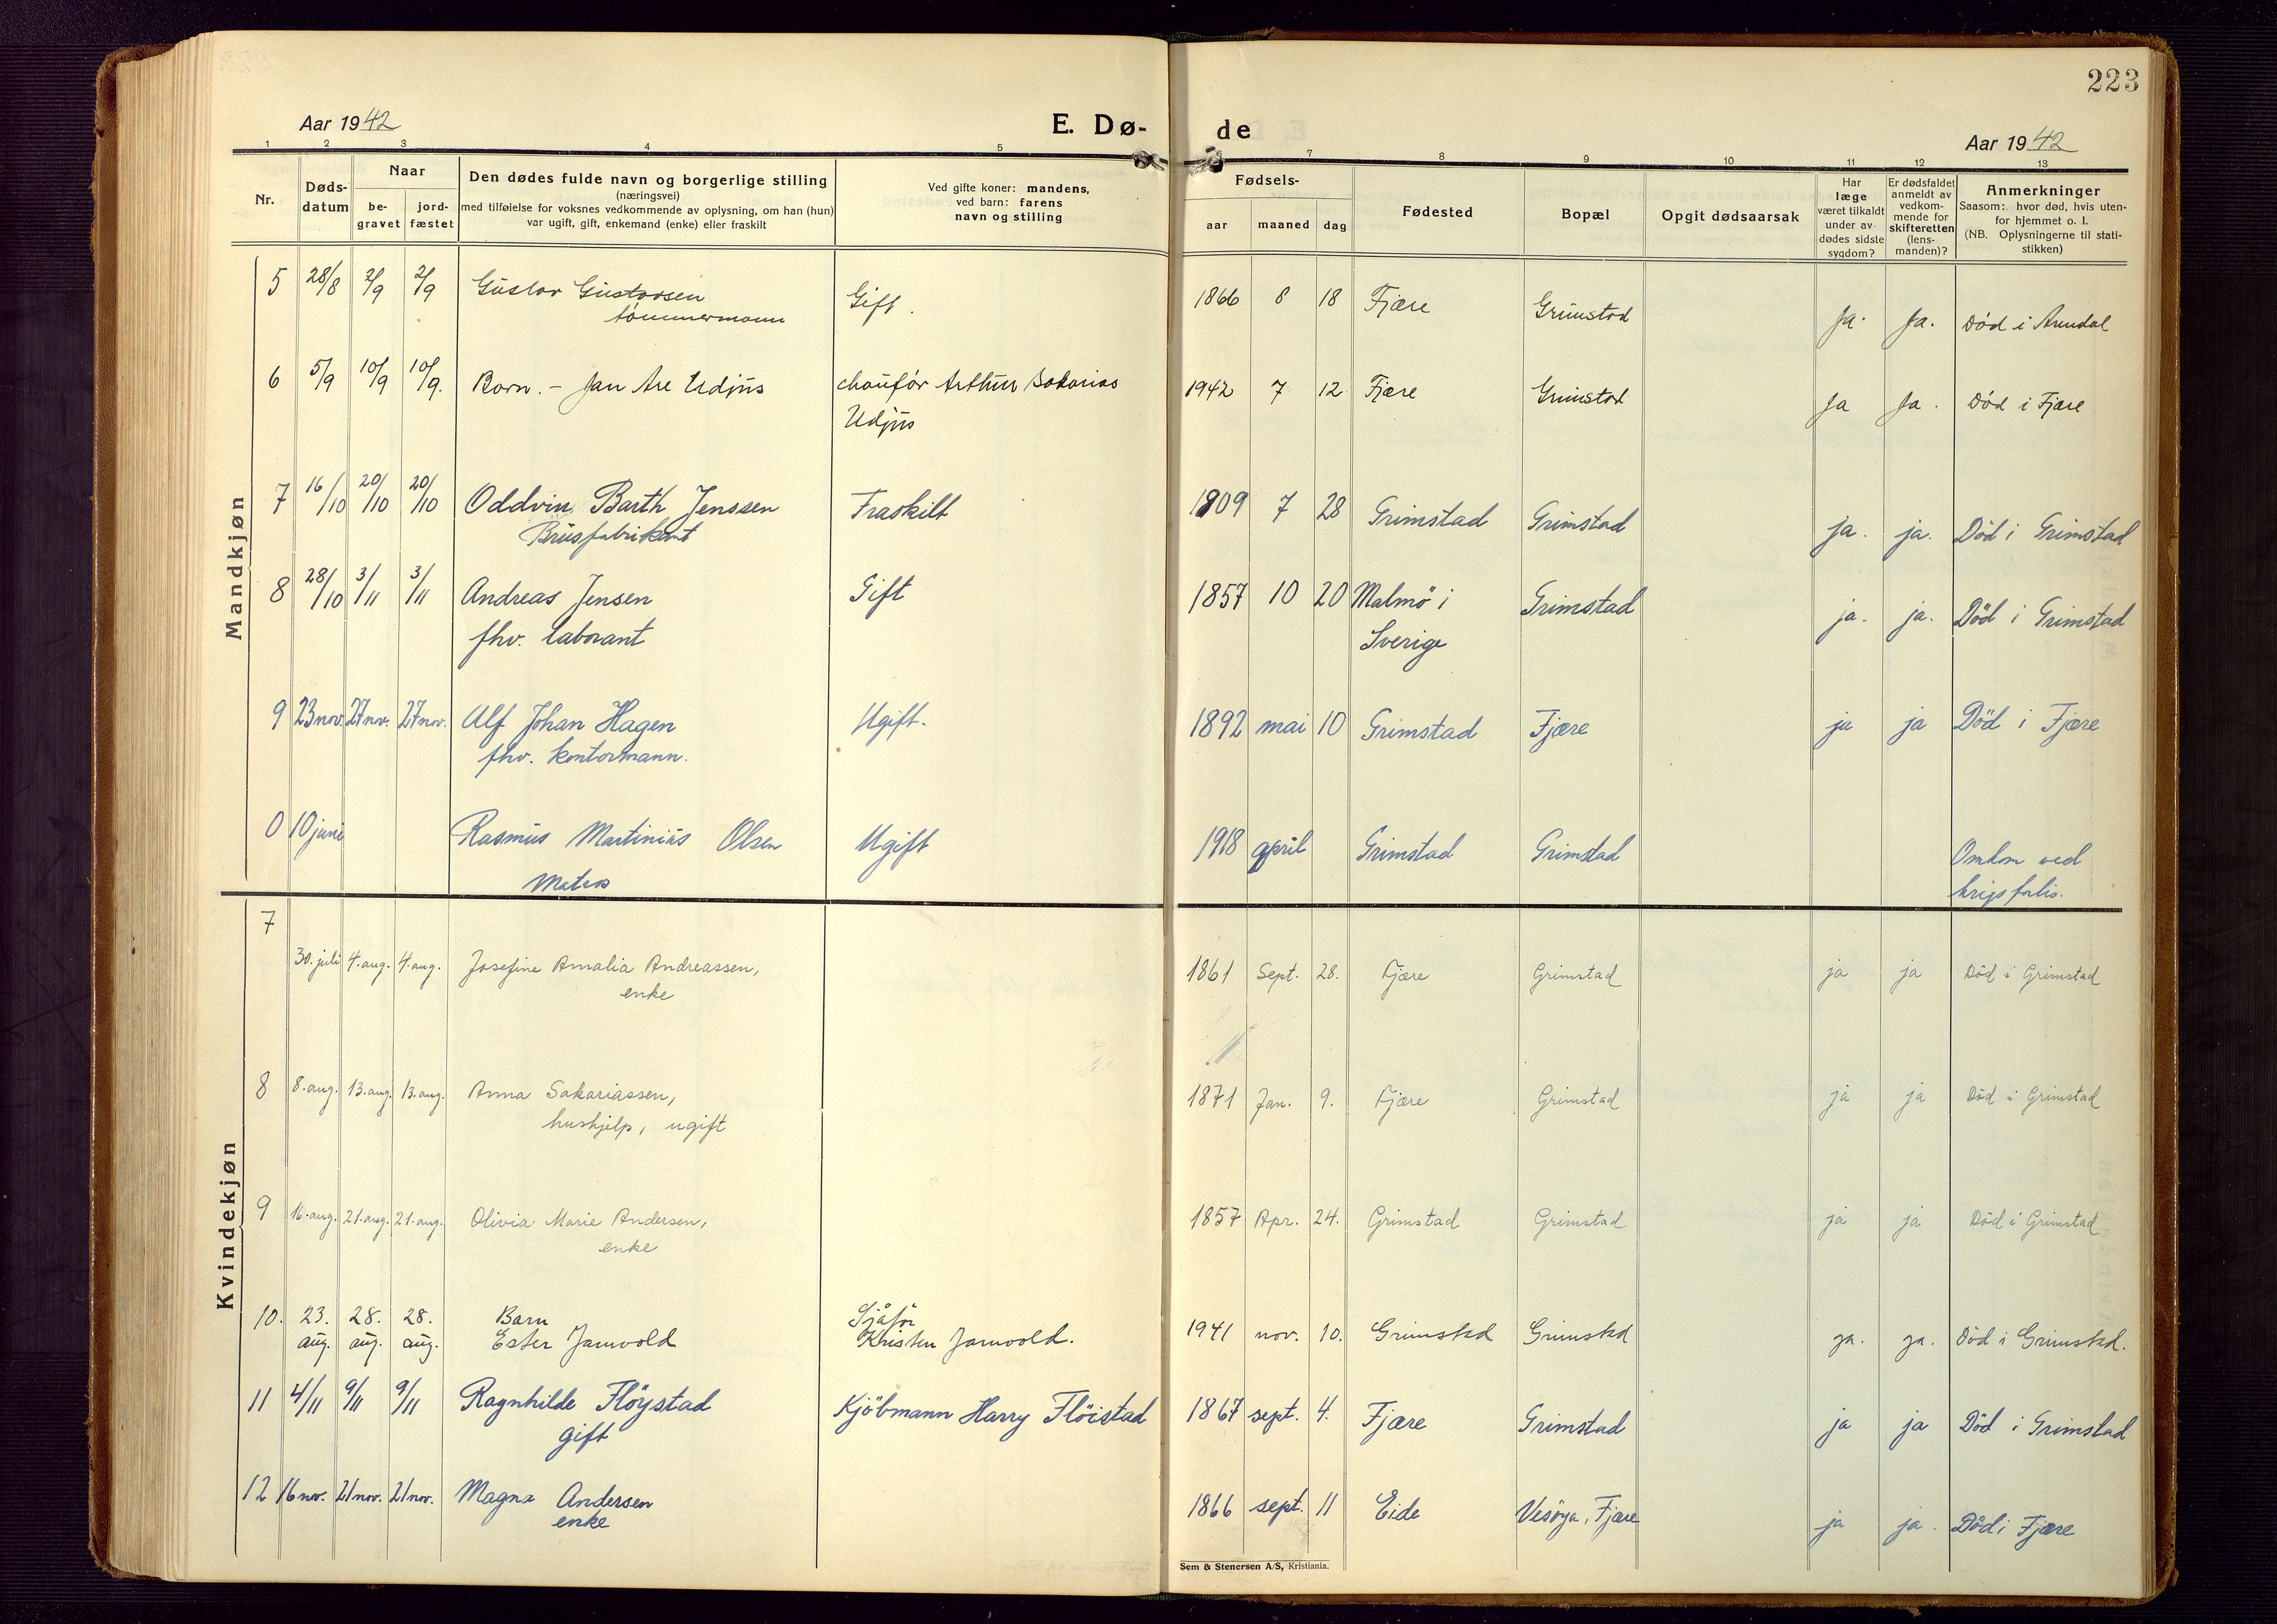 223
Aar 1942
E. Dø-
de
Aar 1942
1 2 3 4 5 6 7 8 9 10 11 12 13
Nr.
Døds-
datum
Naar
be-
gravet
jord-
fæstet
Den dødes fulde navn og borgerlige stilling
(næringsvei)
med tilføielse for voksnes vedkommende av oplysning, om han (hun)
var ugift, gift, enkemand (enke) eller fraskilt
Ved gifte koner: mandens,
ved barn: farens
navn og stilling
Fødsels-
aar maaned dag
Fødested
Bopæl
Opgit dødsaarsak
Har
læge
været tilkaldt
under av-
dødes sidste
sygdom?
Er dødsfaldet
anmeldt av
vedkom-
mende for
skifteretten
(lens-
manden)?
Anmerkninger
Saasom: hvor død, hvis uten-
for hjemmet o. l.
(NB. Oplysningerne til stati-
stikken)
Mandkjøn
5 28/8 2/9 2/9 Gustav Gustavsen Gift. 1866 8 18 Fjære Grimstad Ja. Ja. Död i Arendal
tömmermann
6 5/9 10/9 10/9. Barn. – Jan Are Udjus chauför Arthur Sakarias 1942 7 12 Fjære Grimstad Ja Ja. Död i Fjære
Udjus
7 16/10 20/10 20/10 Oddvin Barth Jenssen Fraskilt 1909 7 28 Grimstad Grimstad ja. ja. Död i Grimstad
Brusfabrikant
8 28/10 3/11 3/11 Andreas Jensen Gift 1857 10 20 Malmö i Grimstad ja. ja. Död i Grimstad
fhv. laborant Sverige
9 23 nov. 27 nov. 27 nov. Alf Johan Hagen Ugift. 1892 mai 10 Grimstad Fjære ja ja Död i Fjære
fhv. kontormann.
0 10 juni Rasmus Martinius Olsen Ugift 1918 april Grimstad Grimstad Omkom ved
Matros krigsforlis.
Kvindekjøn
7
30. juli 4. aug. 4. aug. Josefine Amalia Andreassen, 1861 Sept. 28. Fjære Grimstad ja ja Död i Grimstad
enke
8 8. aug. 13. aug. 13. aug. Anna Sakariassen, 1871 Jan. 9. Fjære Grimstad ja ja Död i Grimstad
hushjelp, ugift
9 16. aug. 21. aug. 21. aug. Olivia Marie Andersen, 1857 Apr. 24. Grimstad Grimstad ja ja Död i Grimstad
enke
10. 23. 28. 28. Barn Sjåför
aug. aug. aug. Ester Jamvold Kristen Jamvold. 1941 nov. 10. Grimstad Grimstad ja. ja. Död i Grimstad.
11 4/11 9/11 9/11 Ragnhilde Flöystad Kjöbmann Harry Flöistad 1867 sept. 4. Fjære Grimstad ja ja Död i Grimstad
gift
12 16 nov. 21 nov. 21 nov. Magna Andersen 1866 sept. 11 Eide Vesöya, Fjære ja ja. Död i Fjære
enke
Sem & Stenersen A/S, Kristiania.